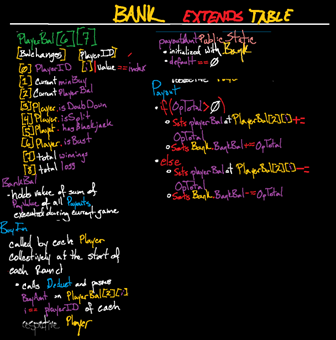 BANK EXTENDS TABLE
PlayerBal[6][7]
[Balchanges] [PlayerID]
[0] PlayerID [:] value == index
[1] Current minBuy
[2] Current PlayerBal
[3] Player.isDoubleDown
[4] Player.isSplit
[5] Player.hasBlackjack
[6] Player.isBust
[7] total winnings
[8] total loss
BankBal
- holds value of sum of
PayValue of all Payouts,
executed during current game
BuyIn
called by each Player
collectively at the start of
each Round
• calls Deduct and passes
BuyAmt on PlayerBal[2][i]
i == playerID of each
respective Player
Public Static
• initialized with Bank
• default == 0
Payout
• if(OpTotal > 0)
• Sets playerBal at PlayerBal[2][i] +=
OpTotal
• Sets Bank.BankBal += OpTotal
• else
• Sets playerBal at PlayerBal[2][i] -=
OpTotal
• Sets Bank.BankBal -= OpTotal